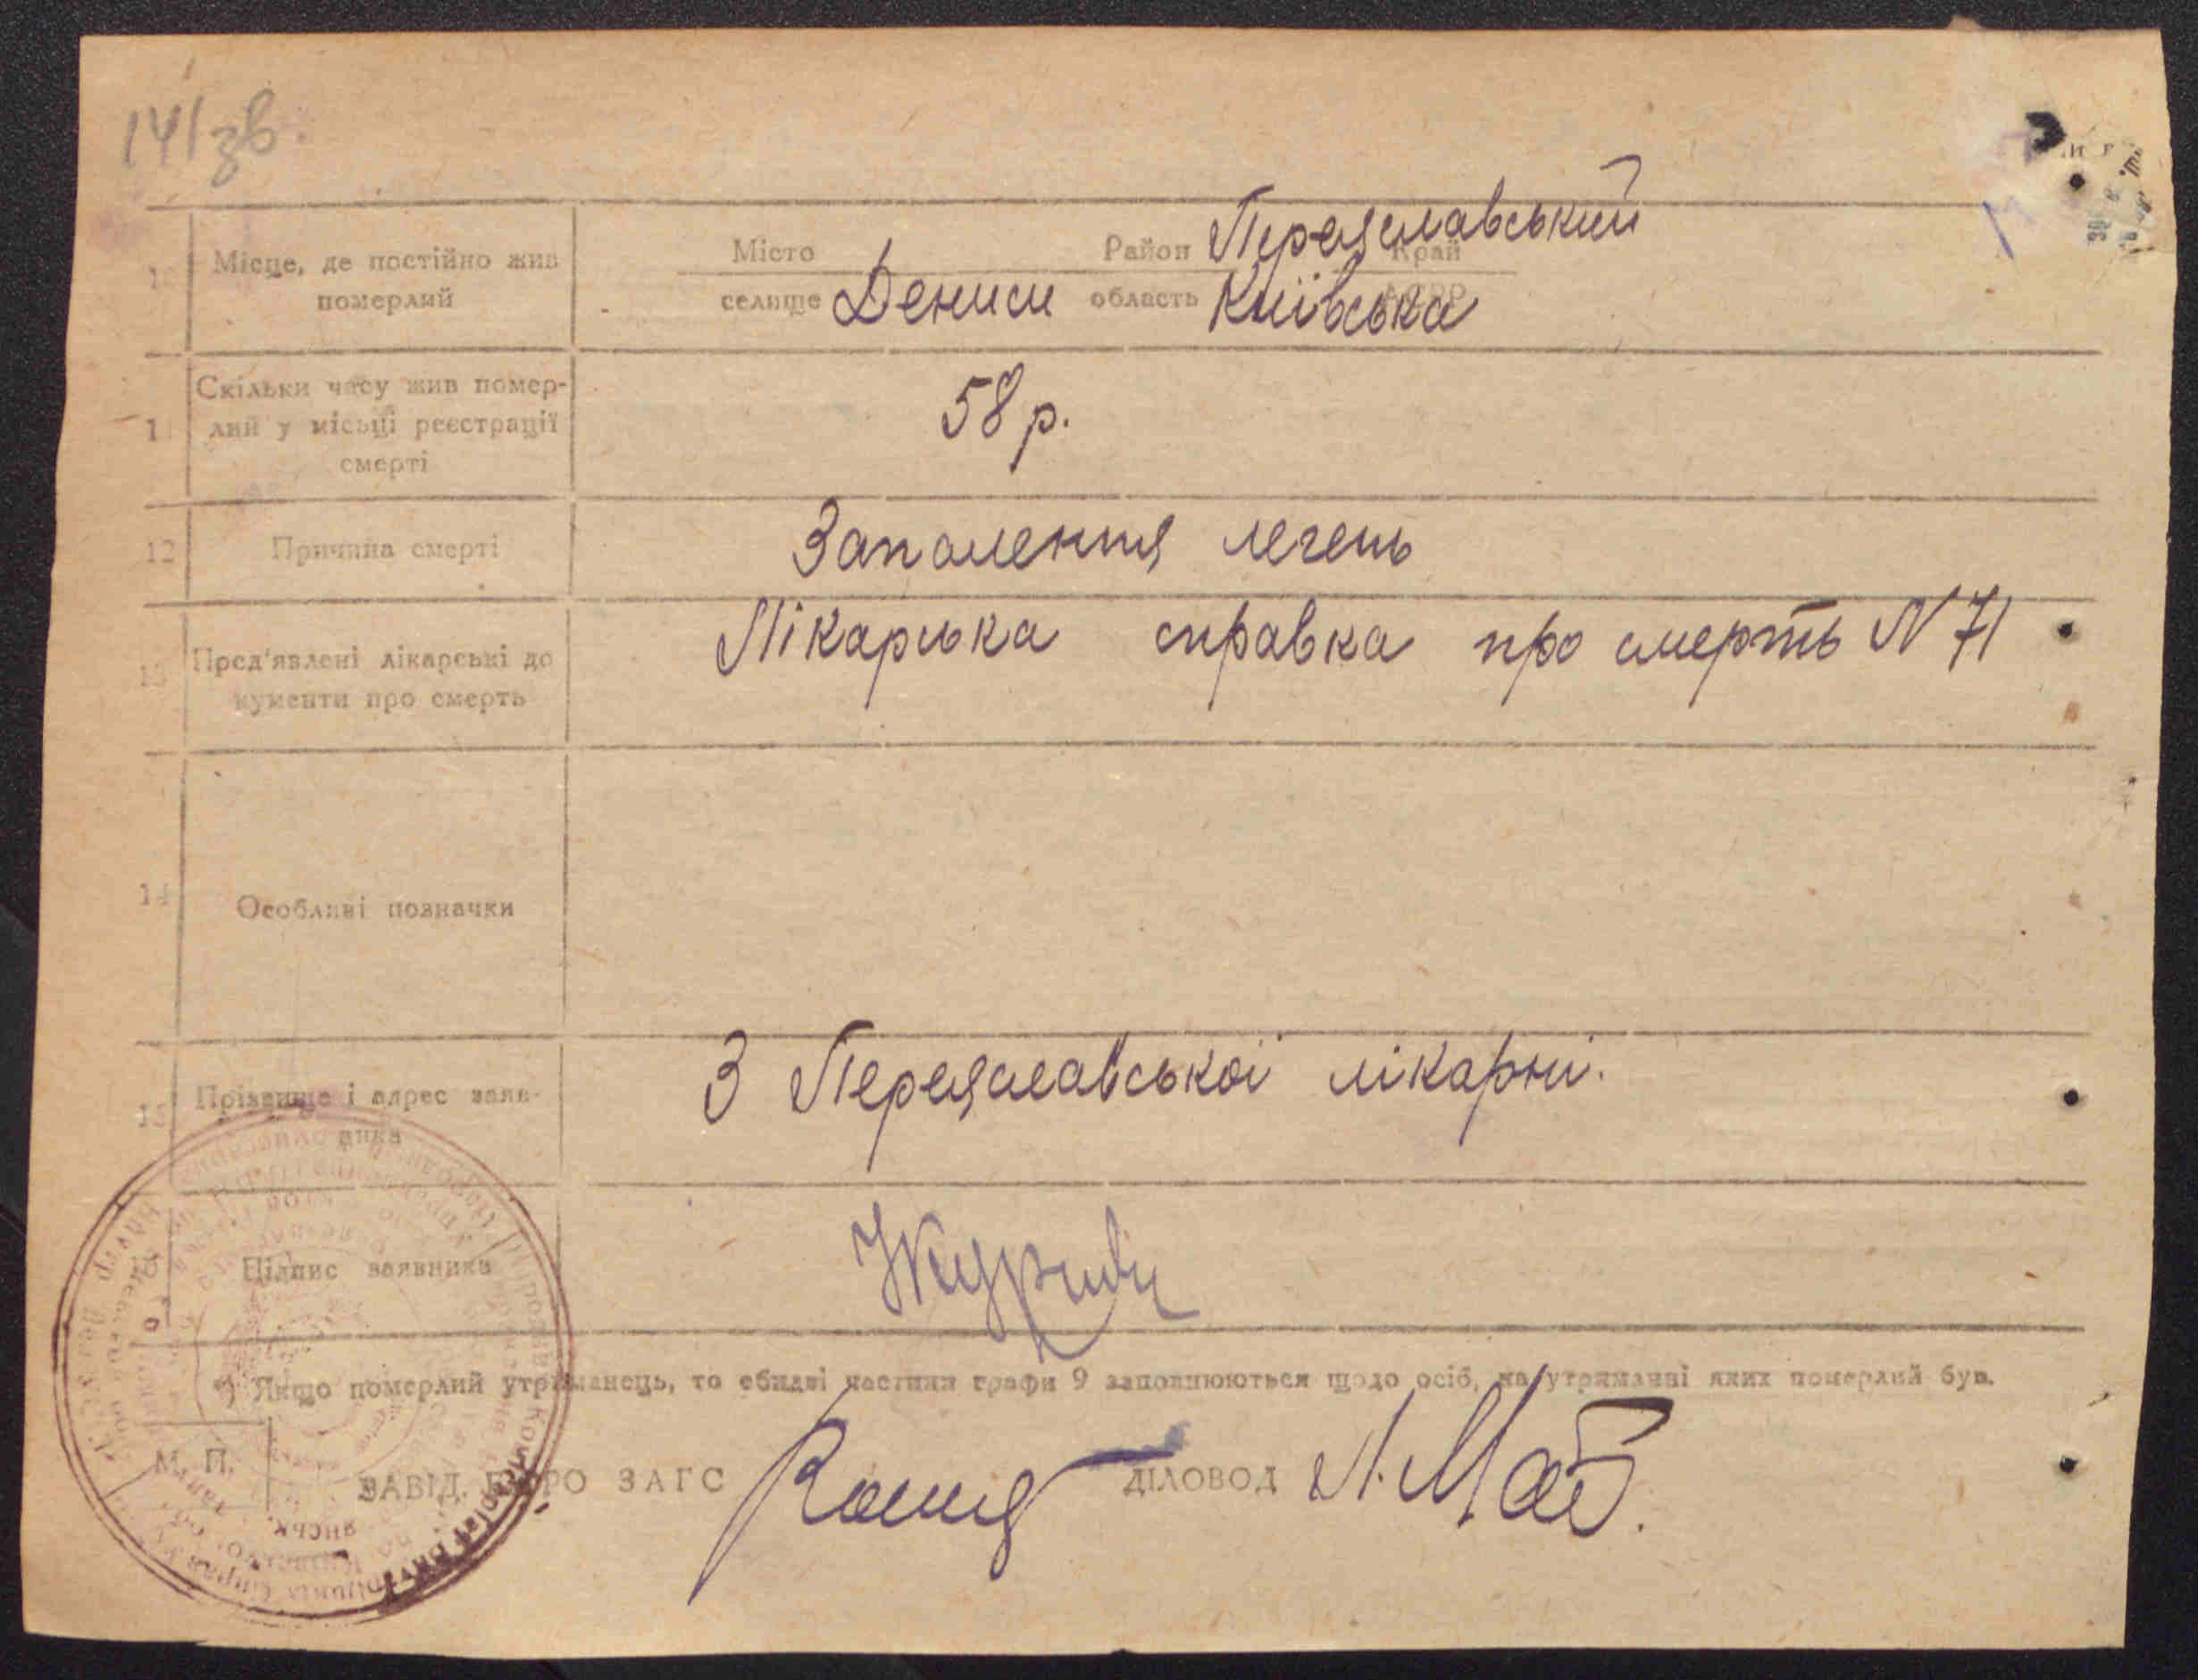 141зв.
Місце, де постійно жив
померлий
Місто
Район Переяславський
Край
селище Дениси область Київська
АСРР
Скільки часу жив помер-
лий у місьці реєстрації
смерті
58 р.
12 Причина смерті
Запалення легень
13 Пред'явлені лікарські до
кументи про смерть
Лікарська справка про смерть N 71
14 Особливі позначки
15 Прізвище і адрес заяв-
ника
З Переяславської лікарні.
Підпис заявника
*) Якщо померлий утриманець, то обидві частини графи 9 заповнюються щодо осіб, на утриманні яких померлий був.
М. П.
ЗАВІД. БЮРО ЗАГС
ДІЛОВОД